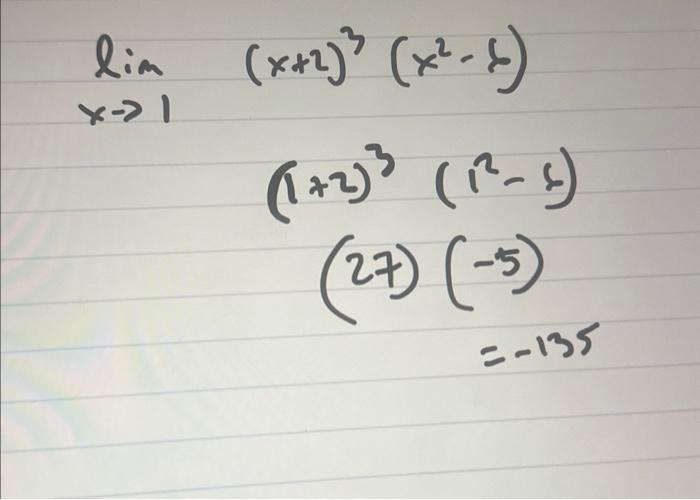 lim (x+2)³ (x²-6)
x->1
(1+2)³ (1²-6)
(27) (-5)
=-135